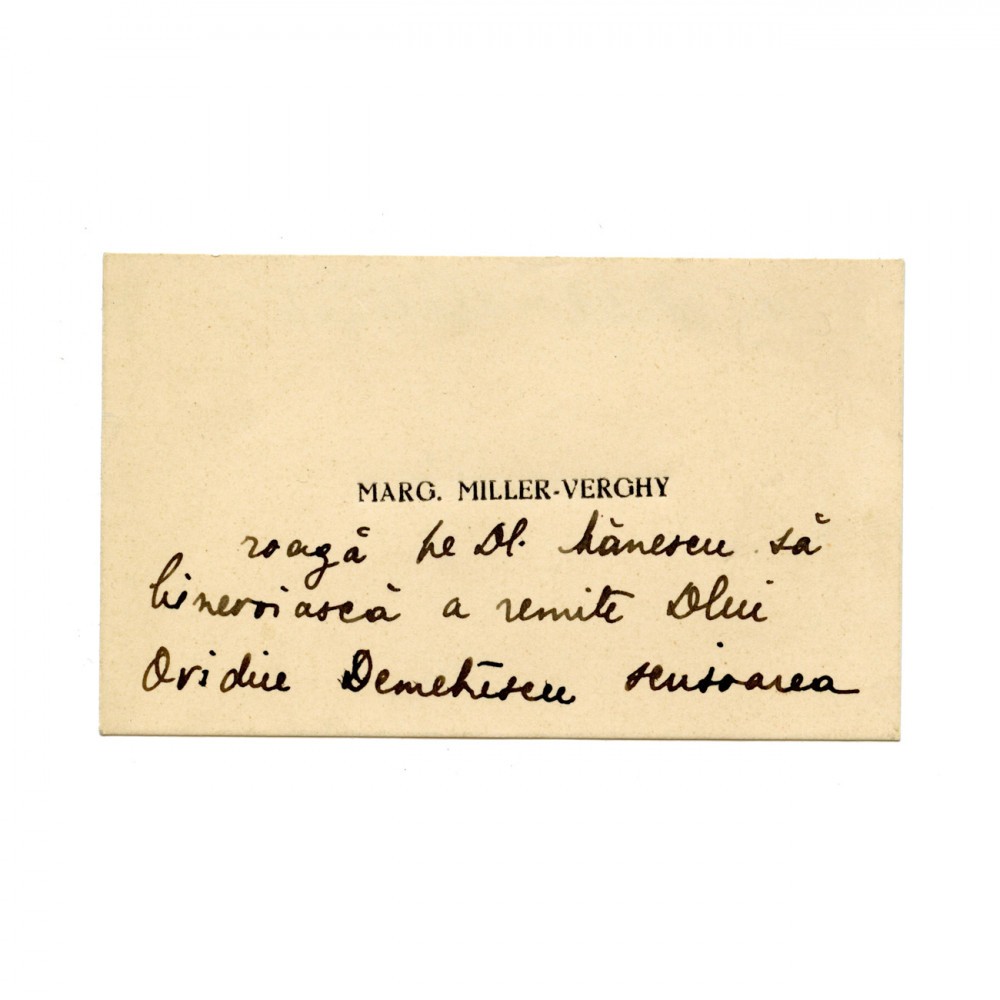 MARG. MILLER-VERGHY
roagă pe Dl. Mănescu să
binevoiască a remite Dlui
Ovidiu Demetrescu scrisoarea